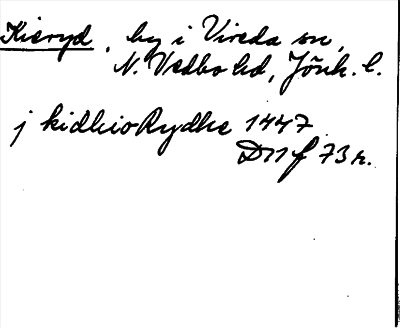 Kieryd, by i Vireda sn,
N. Vedbo hd, Jönk. l.
j kidhioRydhe 1447
D11 f 73 r.